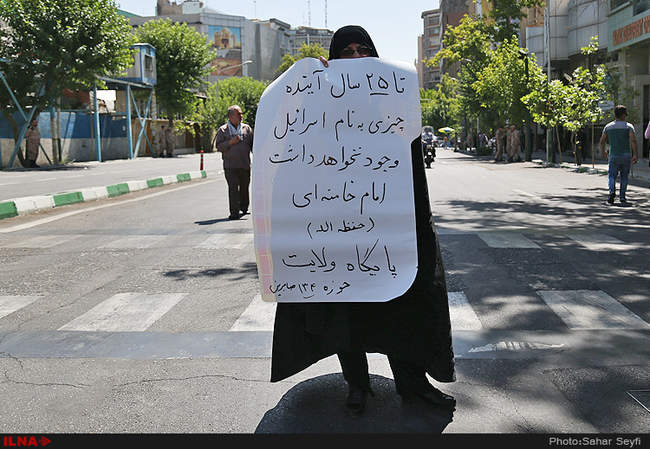 تا ۲۵ سال آینده
چیزی به نام اسرائیل
وجود نخواهد داشت
امام خامنه ای
(حفظه الله)
پایگاه ولایت
حوزه ۱۳۴ صابرین
ILNA
Photo:Sahar Seyfi